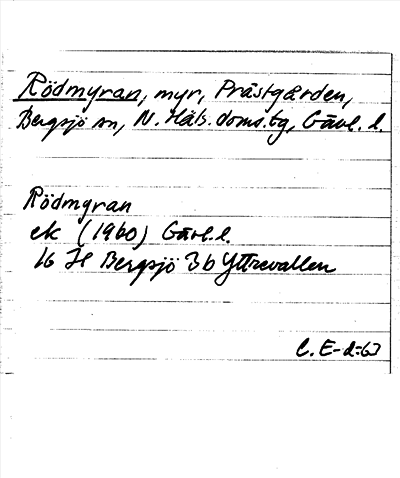 Rödmyran, myr, Prästgården,
Bergsjö sn, N. Häls. doms.tg, Gävl. l.
Rödmyran
ek (1960) Gävl. l.
16 H Bergsjö 3 b Yttrevallen
C. E-d-63